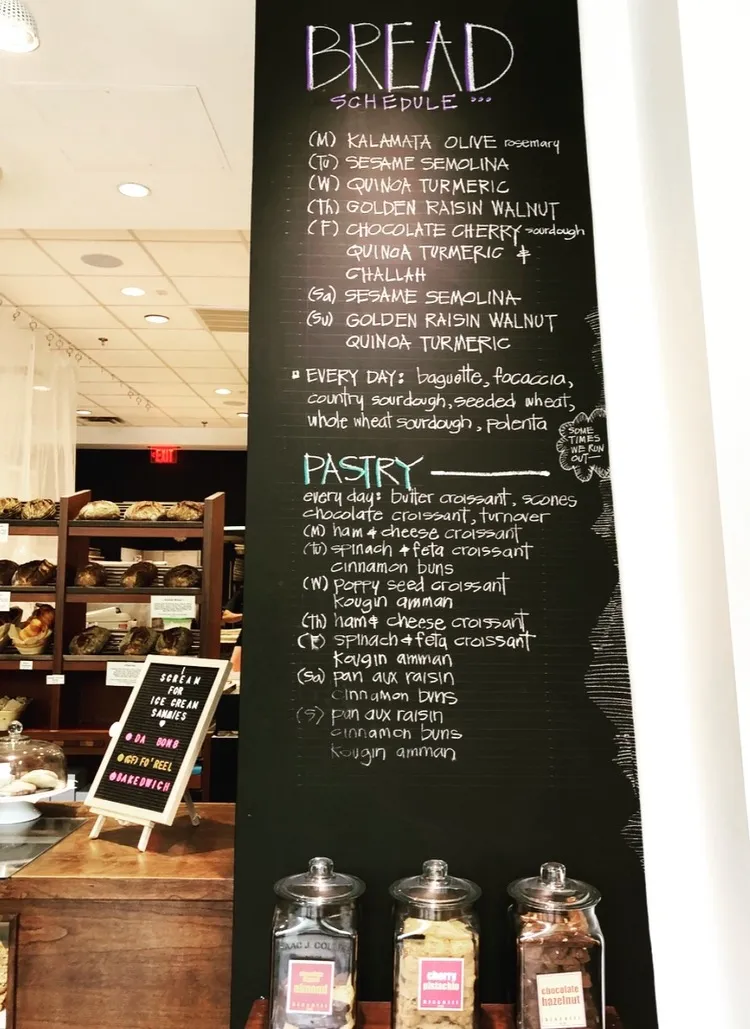 BREAD
SCHEDULE
(M) KALAMATA OLIVE rosemary
(Tu) SESAME SEMOLINA
(W) QUINOA TURMERIC
(Th) GOLDEN RAISIN WALNUT
(F) CHOCOLATE CHERRY sourdough
QUINOA TURMERIC &
CHALLAH
(Sa) SESAME SEMOLINA
(Su) GOLDEN RAISIN WALNUT
QUINOA TURMERIC
EVERY DAY: baguette, focaccia,
country sourdough, seeded wheat,
whole wheat sourdough, polenta
SOME
TIMES
WE RUN
OUT—
PASTRY
every day: butter croissant, scones
chocolate croissant, turnover
(M) ham & cheese croissant
(TU) spinach & feta croissant
cinnamon buns
(W) poppy seed croissant
Kougin amman
(Th) ham & cheese croissant
(F) spinach & feta croissant
Kougin amman
(Sa) pan aux raisin
cinnamon buns
(S) pan aux raisin
cinnamon buns
Kougin amman
EXIT
I
SCREAM
FOR
ICE CREAM
SAMMIES
DA DONG
FO'REEL
BAKEDWICH
almond
cherry
pistachio
BISCOTTI
chocolate
hazelnut
BISCOTTI